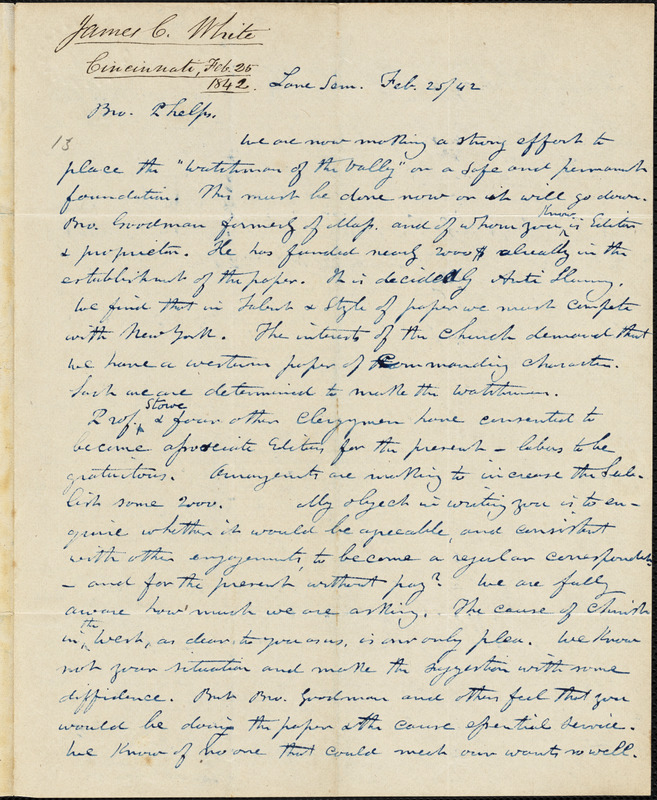 James C. White
Cincinnati, Feb. 25
1842.
Lane Sem. Feb. 25/42
Bro. Phelps,
13
We are now making a strong effort to
place the "Watchman of the Vally" on a safe and permanent
foundation. This must be done now or it will go down.
Bro. Goodman formerly of Mass. and of whom you know is Editor
& proprietor. He has funded nearly 2000$ already in the
establishment of the paper. It is decidedly Anti Slavery.
We find that in talent & style of paper we must compete
with New York. The interests of the Church demand that
we have a western paper of Commanding character.
Such we are determined to make the Watchman.
Prof. Stowe & four other Clergymen have consented to
become associate Editors for the present – labors to be
gratuitous. Arrangements are making to increase the Sub-
list some 2000. My object in writing you is to en-
quire whether it would be agreeable, and consistent
with other engagements, to become a regular correspondent
– and for the present without pay? We are fully
aware how much we are asking. The cause of Christ
in the West, as dear to you as us, is our only plea. We know
not your situation and make the suggestion with some
diffidence. But Bro. Goodman and others feel that you
would be doing the paper & the cause essential service.
We Know of no one that could meet our wants so well.